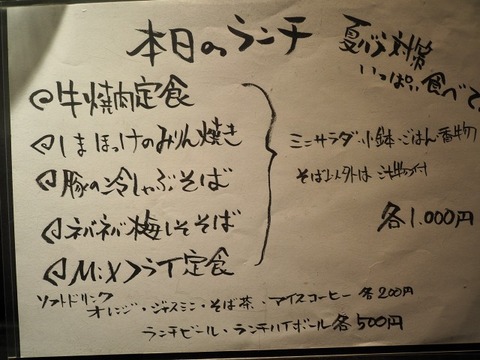 本日のランチ
夏バテ対策
いっぱい食べて
牛焼肉定食
しまほっけのみりん焼き
豚の冷しゃぶそば
ネバネバ梅しそそば
MiXフライ定食
ミニサラダ・小鉢・ごはん・香物
そば以外は 汁物付
各1,000円
ソフトドリンク
オレンジ・ジャスミン・そば茶・アイスコーヒー 各200円
ランチビール・ランチハイボール各500円